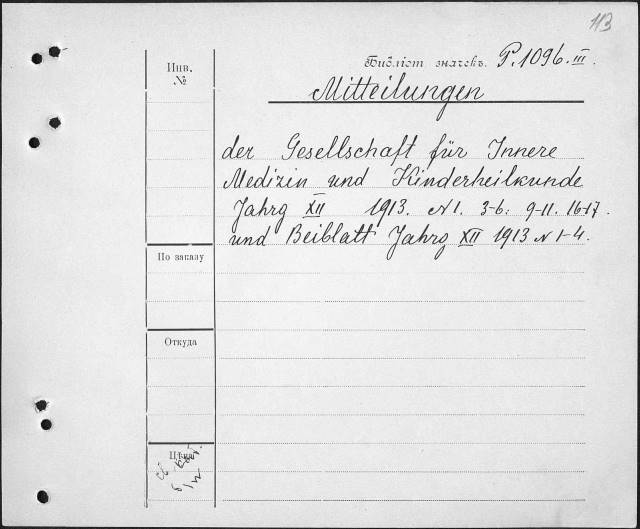 113
Инв. №
Библіот значекъ. P. 1096. III.
Mitteilungen
der Gesellschaft für Innere
Medizin und Kinderheilkunde
Jahrg XII 1913. N 1. 3-6. 9-11. 16-17.
und Beiblatt Jahrg XII 1913 N 1-4.
По заказу
Откуда
Цѣна